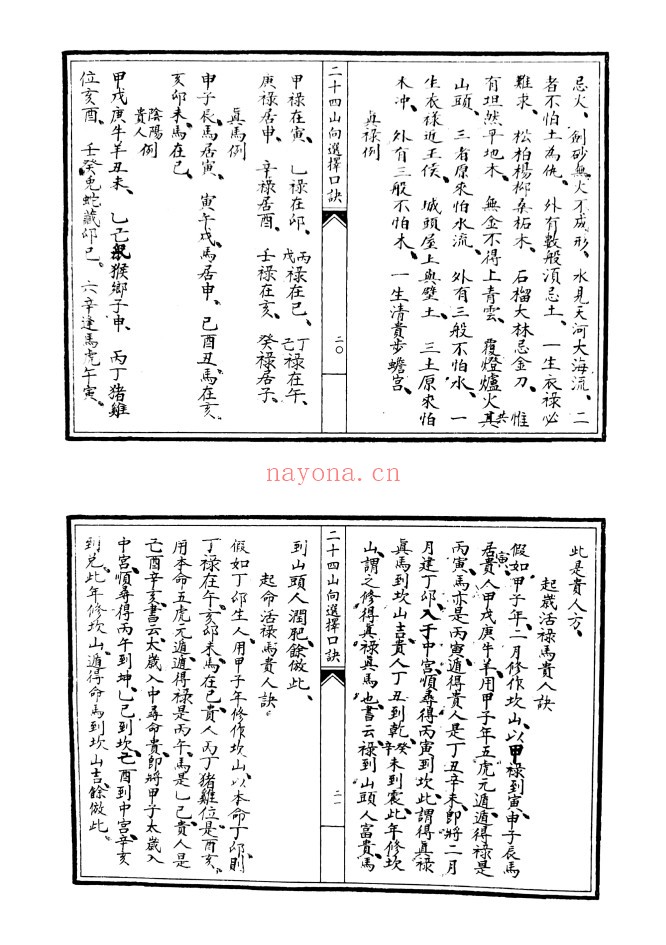 忌火、劍砂無火不成形、水見天河大海流、二
者不怕土為仇、外有數般湏忌土、一生衣祿必
難求、松柏楊柳桑柘木、石榴大林忌金刀、惟
有坦然平地木、無金不得上青雲、覆燈爐火其
山頭、三者原來怕水流、外有三般不怕水、一
生衣祿近王侯、城頭屋上與壁土、三土原來怕
木冲、外有三般不怕木、一生清貴步蟾宮、
真祿例
二十四山向選擇口訣
二〇
甲祿在寅、乙祿在卯、丙戊祿在己、丁己祿在午、
庚祿居申、辛祿居酉、壬祿在亥、癸祿居子、
真馬例
申子辰馬居寅、寅午戌馬居申、巳酉丑馬在亥、
亥卯未馬在巳、
陰陽貴人例
甲戊庚牛羊丑未、乙己猴鄉子申、丙丁猪雞
位亥酉、壬癸兔蛇藏卯巳。六辛逢馬虎午寅、
nayona.cn
此是貴人方、
起歲活祿馬貴人訣
假如甲子年、二月修作坎山、以甲祿到寅、申子辰馬
居寅、貴人甲戊庚牛羊、用甲子年五虎元遁、遁得祿是
丙寅、馬亦是丙寅、遁得貴人是丁丑辛未、即將二月
月建丁卯、入于中宮、順尋得丙寅到坎、此謂得真祿
真馬到坎山吉、貴人丁丑到乾、辛未到震、此年修坎
山、謂之修得真祿真馬也、書云、祿到山頭人富貴、馬
二十四山向選擇口訣
二一
到山頭人潤肥、餘倣此、
起命活祿馬貴人訣。
假如丁卯生人、用甲子年修作坎山、以本命丁卯、則
丁祿在午、亥卯未馬在巳、貴人丙丁猪雞位、是酉亥、
用本命五虎元遁、遁得祿是丙午、馬是乙巳、貴人是
己酉辛亥、書云、太歲入中尋命貴、即將甲子太歲入
中宮、順尋得丙午到坤、乙巳到坎、己酉到中宮、辛亥
到兌、此年修坎山、遁得命馬到坎山吉、餘倣此、